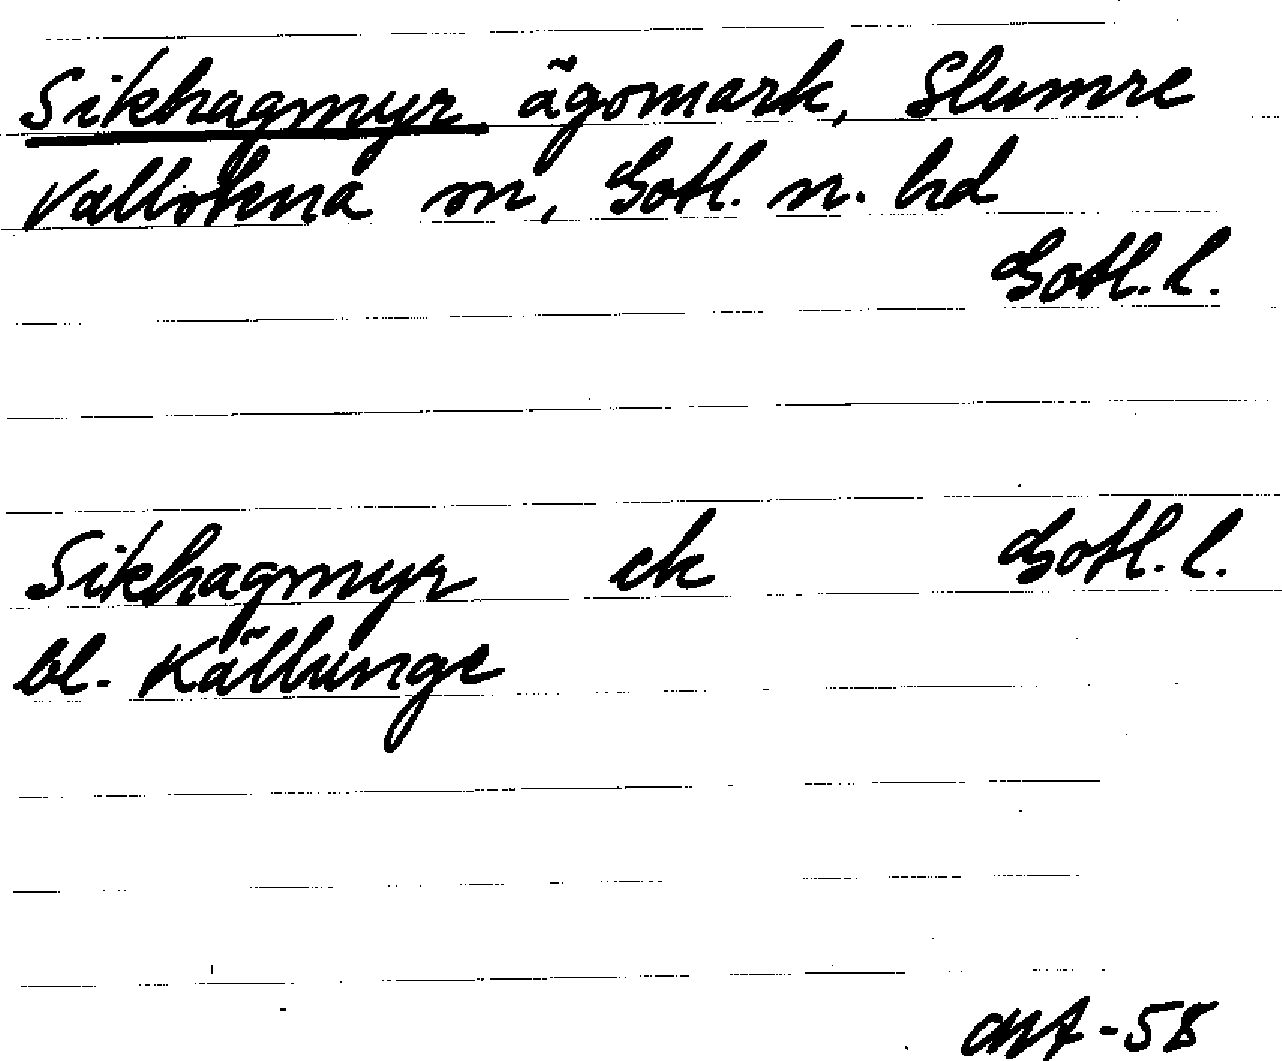 Sikhagmyr ägomark, Slumre
Vallstena sn, Gotl. n. hd
Gotl. l.
Sikhagmyr ek Gotl. l.
bl. Källunge
-58